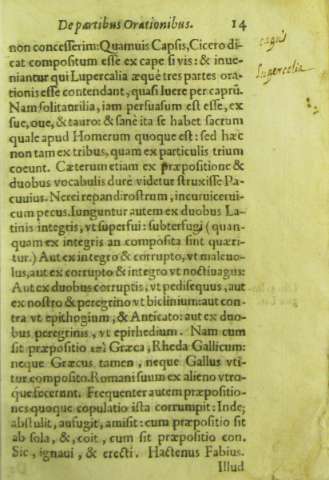 De partibus Orationibus. 14
non concesserim: Quamuis Capsis, Cicero di-
cat compositum esse ex cape si vis: & inue-
niantur qui Lupercalia æquè tres partes ora-
tionis esse contendant, quasi luere per caprũ.
Nam solitaurilia, iam persuasum est esse, ex
sue, oue, & tauro: & sanè ita se habet sacrum
quale apud Homerum quoque est: sed hæc
non tam ex tribus, quam ex particulis trium
coeunt. Cæterum etiam ex præpositione &
duobus vocabulis durè videtur struxisse Pa-
cuuius. Nerei repandirostrum, incuruicerui-
cum pecus. Iunguntur autem ex duobus La-
tinis integris, vt superfui: subterfugi (quan-
quam ex integris an composita sint quæri-
tur.) Aut ex integro & corrupto, vt maleuo-
lus, aut ex corrupto & integro vt noctiuagus:
Aut ex duobus corruptis, vt pedisequus, aut
ex nostro & peregrino vt biclinium: aut con-
tra vt epithogium, & Anticato: aut ex duo-
bus peregrinis, vt epirhedium. Nam cum
sit præpositio ἐπὶ Græca, Rheda Gallicum:
neque Græcus tamen, neque Gallus vti-
tur composito. Romani suum ex alieno vtro-
que fecerunt. Frequenter autem præpositio-
nes quoque copulatio ista corrumpit: Inde,
abstulit, aufugit, amisit: cum præpositio sit
ab sola, &, coit, cum sit præpositio con.
Sic, ignaui, & erecti. Hactenus Fabius.
Illud